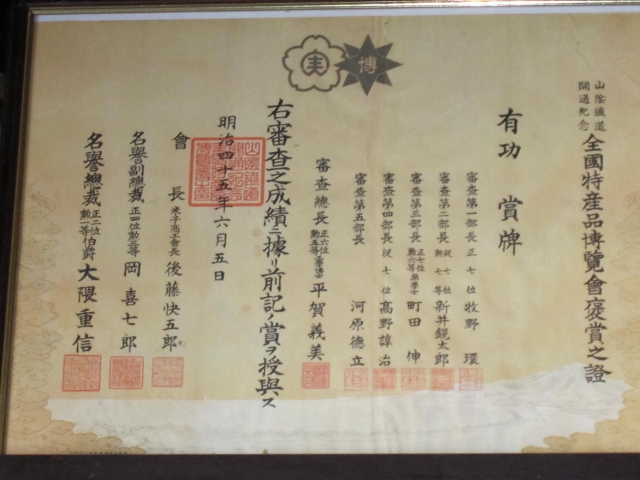 実
博
山陰鐵道
開通紀念
全國特産品博覽會褒賞之證
有功賞牌
審査第一部長 正七位 牧野 環
審査第二部長 從七位 勲七等 新井鋭太郎
審査第三部長 正七位 勲六等 藥學士 町田 伸
審査第四部長 從七位 高野諄治
審査第五部長 河原德立
審査總長 正六位 勲五等 平賀義美
右審査之成績ニ據リ前記ノ賞ヲ授與ス
明治四十五年六月五日
會長 米子商工會長 後藤快五郎
名譽副總裁 正四位 勲三等 岡喜七郎
名譽總裁 正二位 勲一等 伯爵 大隈重信